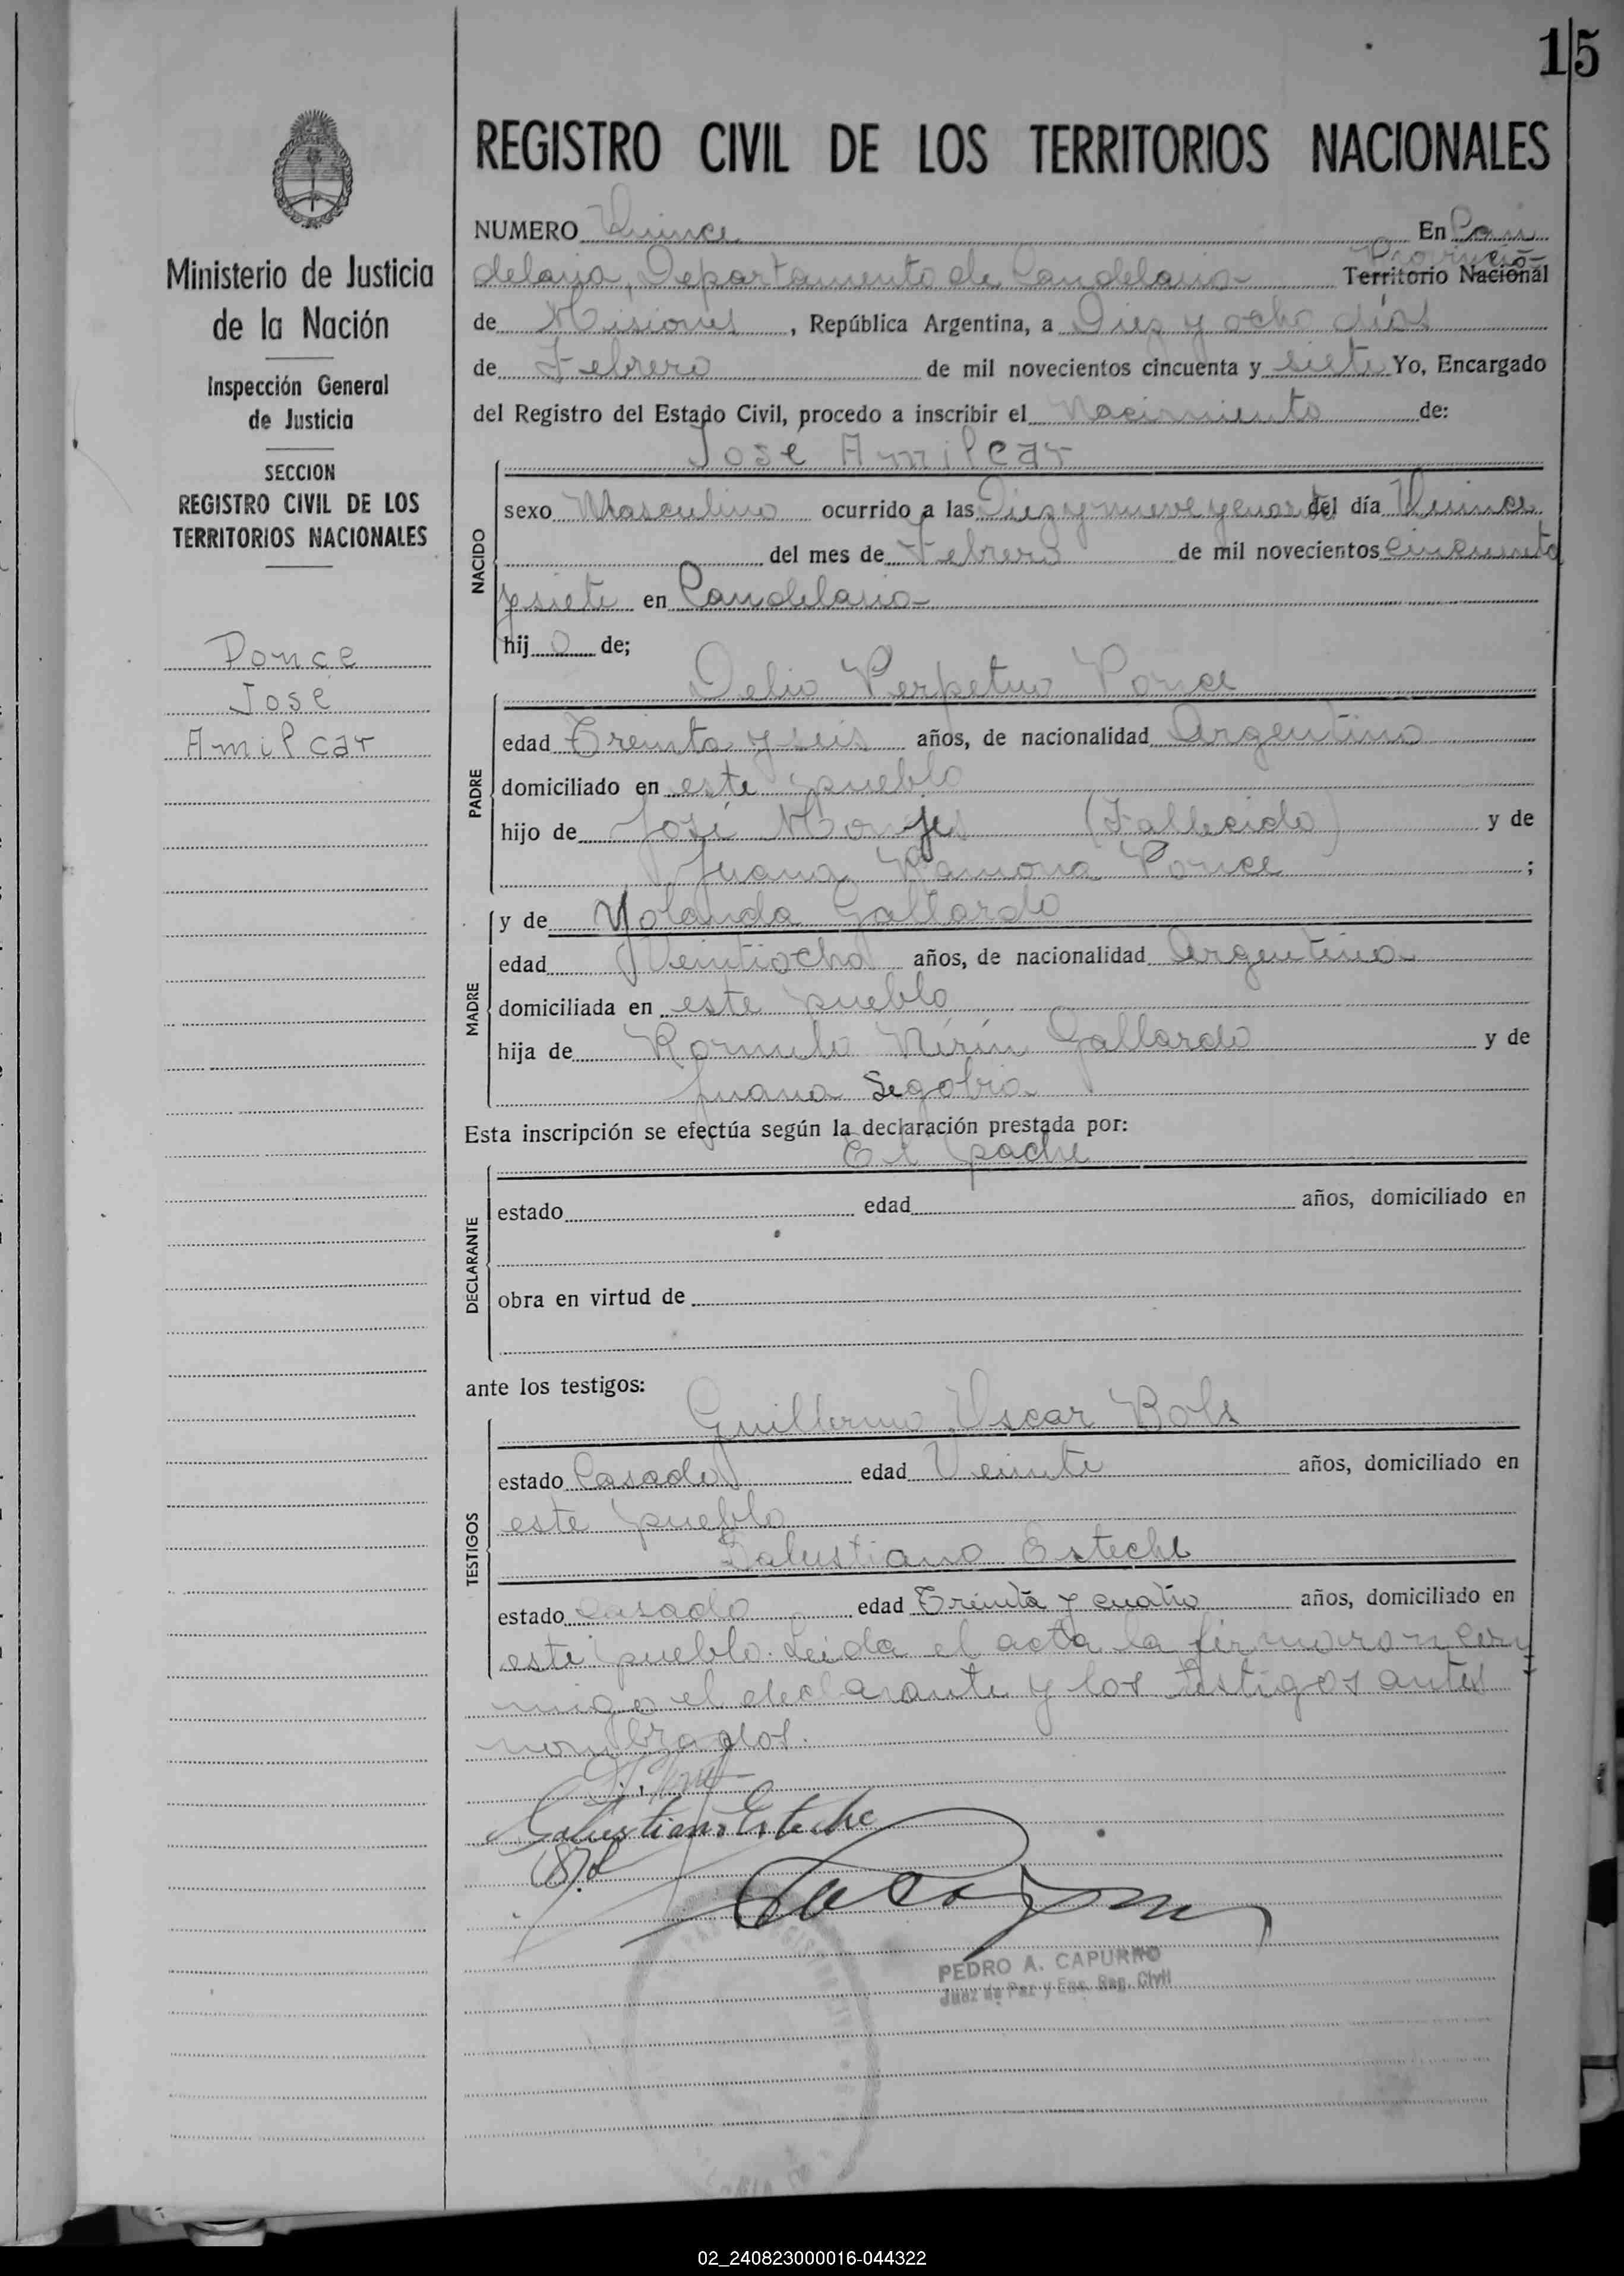 15
REGISTRO CIVIL DE LOS TERRITORIOS NACIONALES
Ministerio de Justicia
de la Nación
Inspección General
de Justicia
SECCION
REGISTRO CIVIL DE LOS
TERRITORIOS NACIONALES
Ponce
Jose
Amilcar
NUMERO Quince En Can
Provincia
delaria, Departamento de Candelaria Territorio Nacional
de Misiones, República Argentina, a Diez y ocho días
de Febrero de mil novecientos cincuenta y siete Yo, Encargado
del Registro del Estado Civil, procedo a inscribir el Nacimiento de:
Jose Amilcar
NACIDO
sexo Masculino ocurrido a las Diez y nueve y cuarto del día Quince
del mes de Febrero de mil novecientos cincuenta
y siete en Candelaria
hij o de;
Delio Perpetuo Ponce
PADRE
edad Treinta y seis años, de nacionalidad Argentino
domiciliado en este pueblo
hijo de José Monjes (Fallecido) y de
Juana Ramona Ponce ;
y de Yolanda Gallardo
MADRE
edad Veintiocho años, de nacionalidad Argentina
domiciliada en este pueblo
hija de Romulo Gallardo y de
Juana Segobia
Esta inscripción se efectúa según la declaración prestada por:
El padre
DECLARANTE
estado edad años, domiciliado en
obra en virtud de
ante los testigos:
Guillermo Oscar Bols
TESTIGOS
estado Casado edad Veinte años, domiciliado en
este pueblo
Salustiano Esteche
estado Casado edad Treinta y cuatro años, domiciliado en
este pueblo. Leida el acta la firmaron con
migo el declarante y los testigos antes
nombrados.
Salustiano Esteche
PEDRO A. CAPURRO
Juez de Paz y Enc. Reg. Civil
02_240823000016-044322